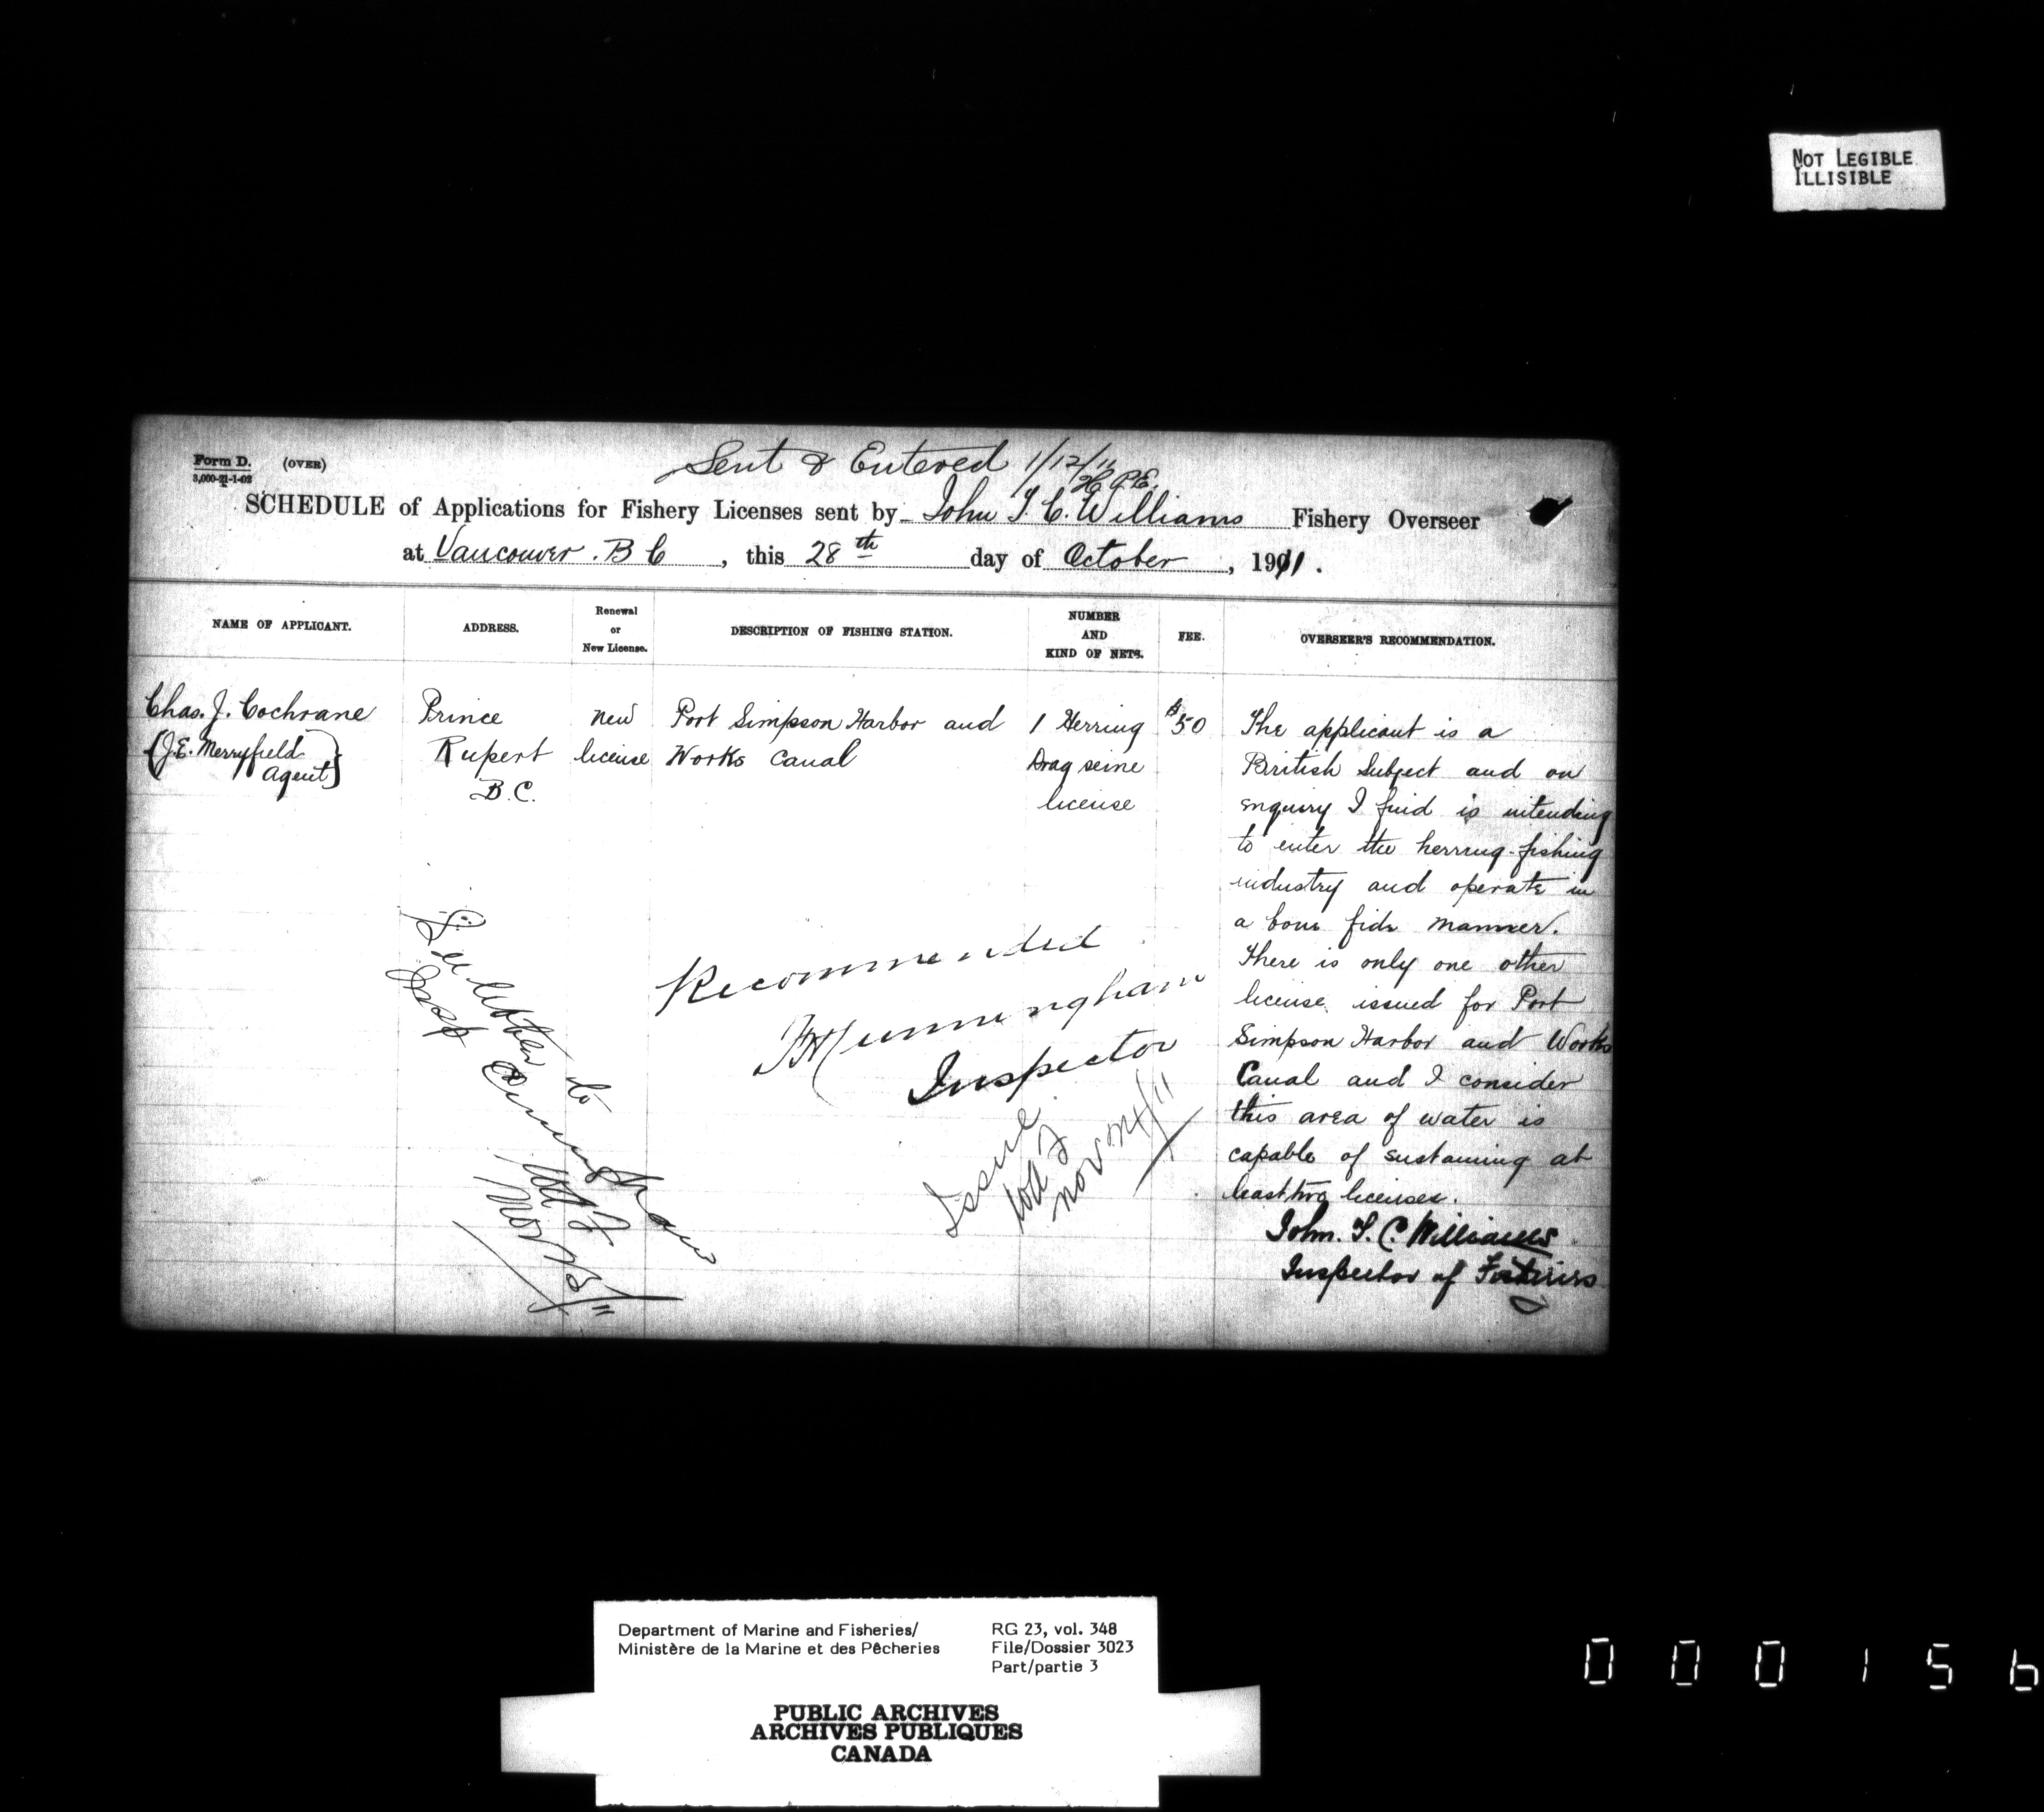 NOT LEGIBLE
ILLISIBLE
Form D. (OVER)
3,000-21-1-02
Sent & Entered 1/12/11
SCHEDULE of Applications for Fishery Licenses sent by John T. C. Williams Fishery Overseer
at Vancouver. B C, this 28th day of October, 1911.
NAME OF APPLICANT.
ADDRESS.
Renewal
or
New License.
DESCRIPTION OF FISHING STATION.
NUMBER
AND
KIND OF NETS.
FEE.
OVERSEER'S RECOMMENDATION.
Chas. J. Cochrane
(J.E. Merryfield
agent)
Prince
Rupert
B.C.
new
license
Port Simpson Harbor and
Works Canal
1 Herring
Drag seine
license
$50
The applicant is a
British Subject and on
enquiry I find is intending
to enter the herring-fishing
industry and operate in
a bona fide manner.
There is only one other
license issued for Port
Simpson Harbor and Works
Canal and I consider
this area of water is
capable of sustaining at
least two licenses.
John. T. C. Williams
Inspector of Fisheries
See letter to
Insp Cunningham
Nov /11
Recommended
Cunningham
Inspector
Issue
Nov /11
Department of Marine and Fisheries/
Ministère de la Marine et des Pêcheries
RG 23, vol. 348
File/Dossier 3023
Part/partie 3
PUBLIC ARCHIVES
ARCHIVES PUBLIQUES
CANADA
000156